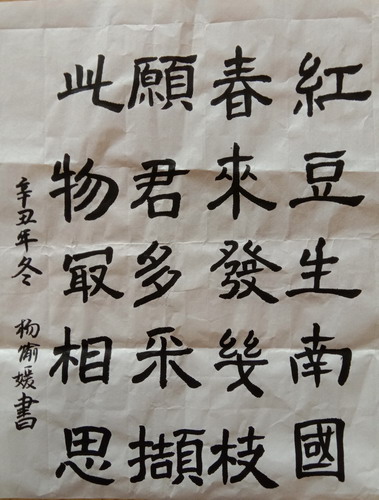 紅豆生南國
春來發幾枝
願君多采擷
此物冣相思
辛丑年冬 杨愉媛書